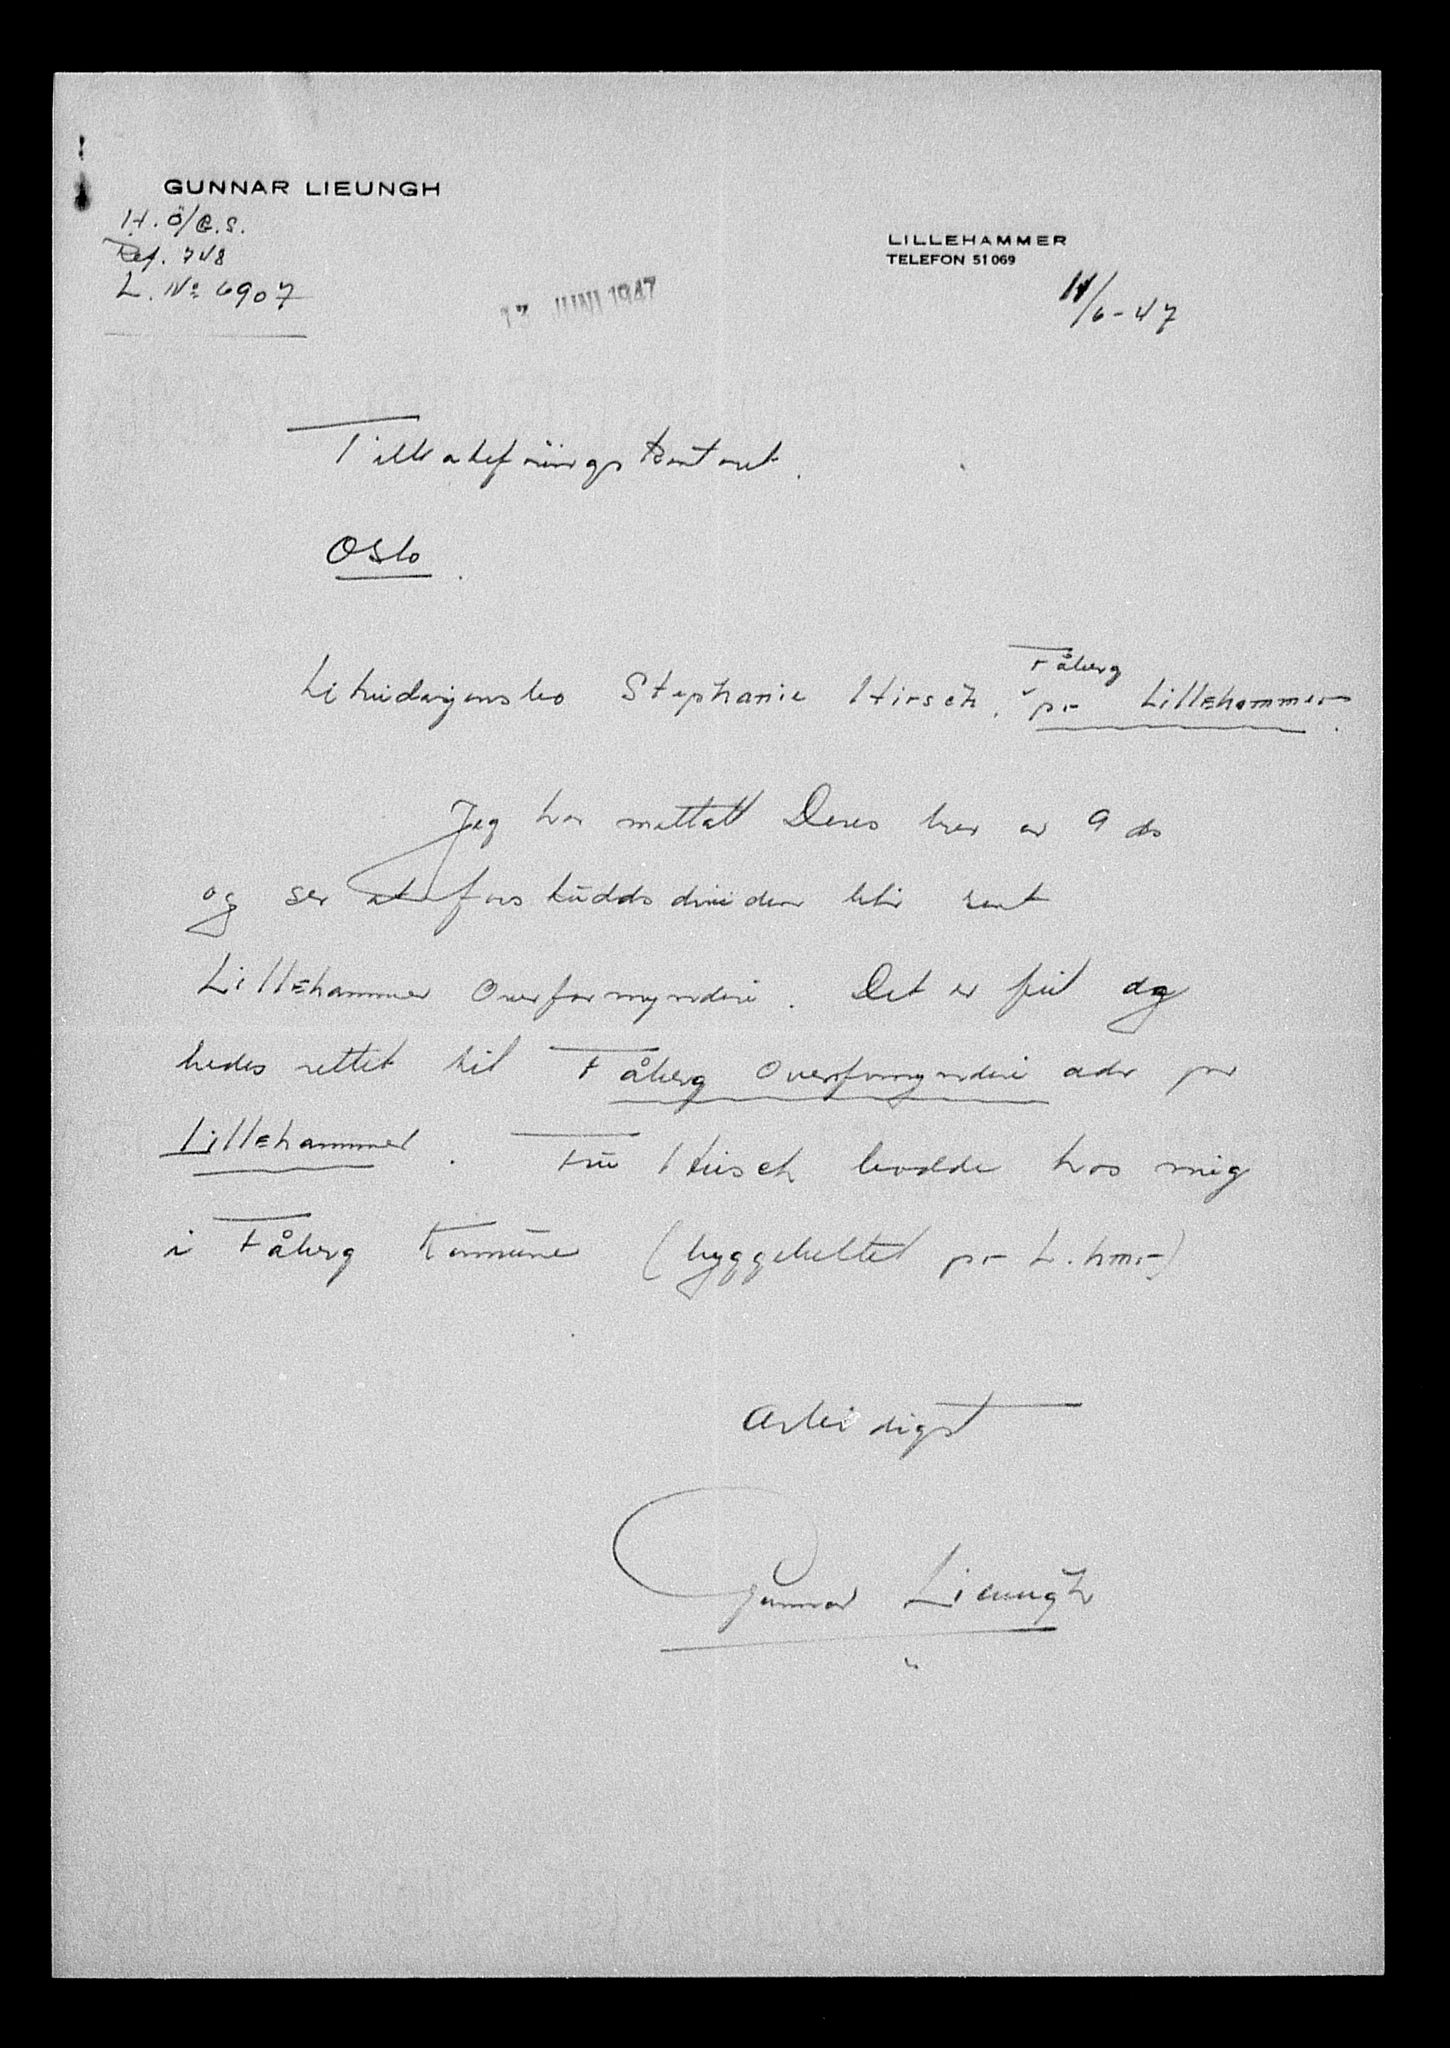 GUNNAR LIEUNGH
H.Ö/G.S.
Ref. 748
L. No 6907
LILLEHAMMER
TELEFON 51069
JUNI 1947
11/6-47
Tilbakeföringskontoret.
Oslo.
Fåberg
Likvidasjonsbo Stephanie Hirsch, pr Lillehammer.
Jeg har mottatt Deres brev av 9 ds
og ser at forskuddsdividenden blir sent
Lillehammer Overformynderi. Det er feil og
bedes rettet til Fåberg Overformynderi adr pr
Lillehammer. Fru Hirsch bodde hos mig
i Fåberg Kommune (byggebeltet pr L.hmr)
Ærbødigst
Gunnar Lieungh